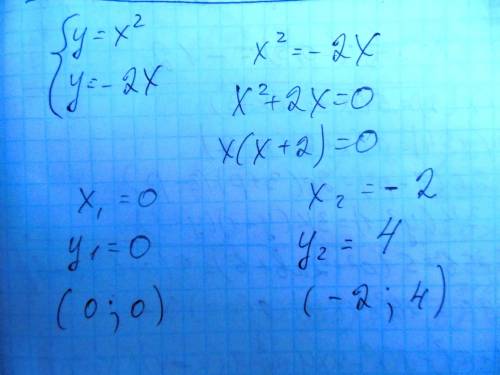 {y = x²
y = - 2x
x² = - 2x
x² + 2x = 0
x(x + 2) = 0
x₁ = 0
y₁ = 0
(0 ; 0)
x₂ = - 2
y₂ = 4
(- 2 ; 4)